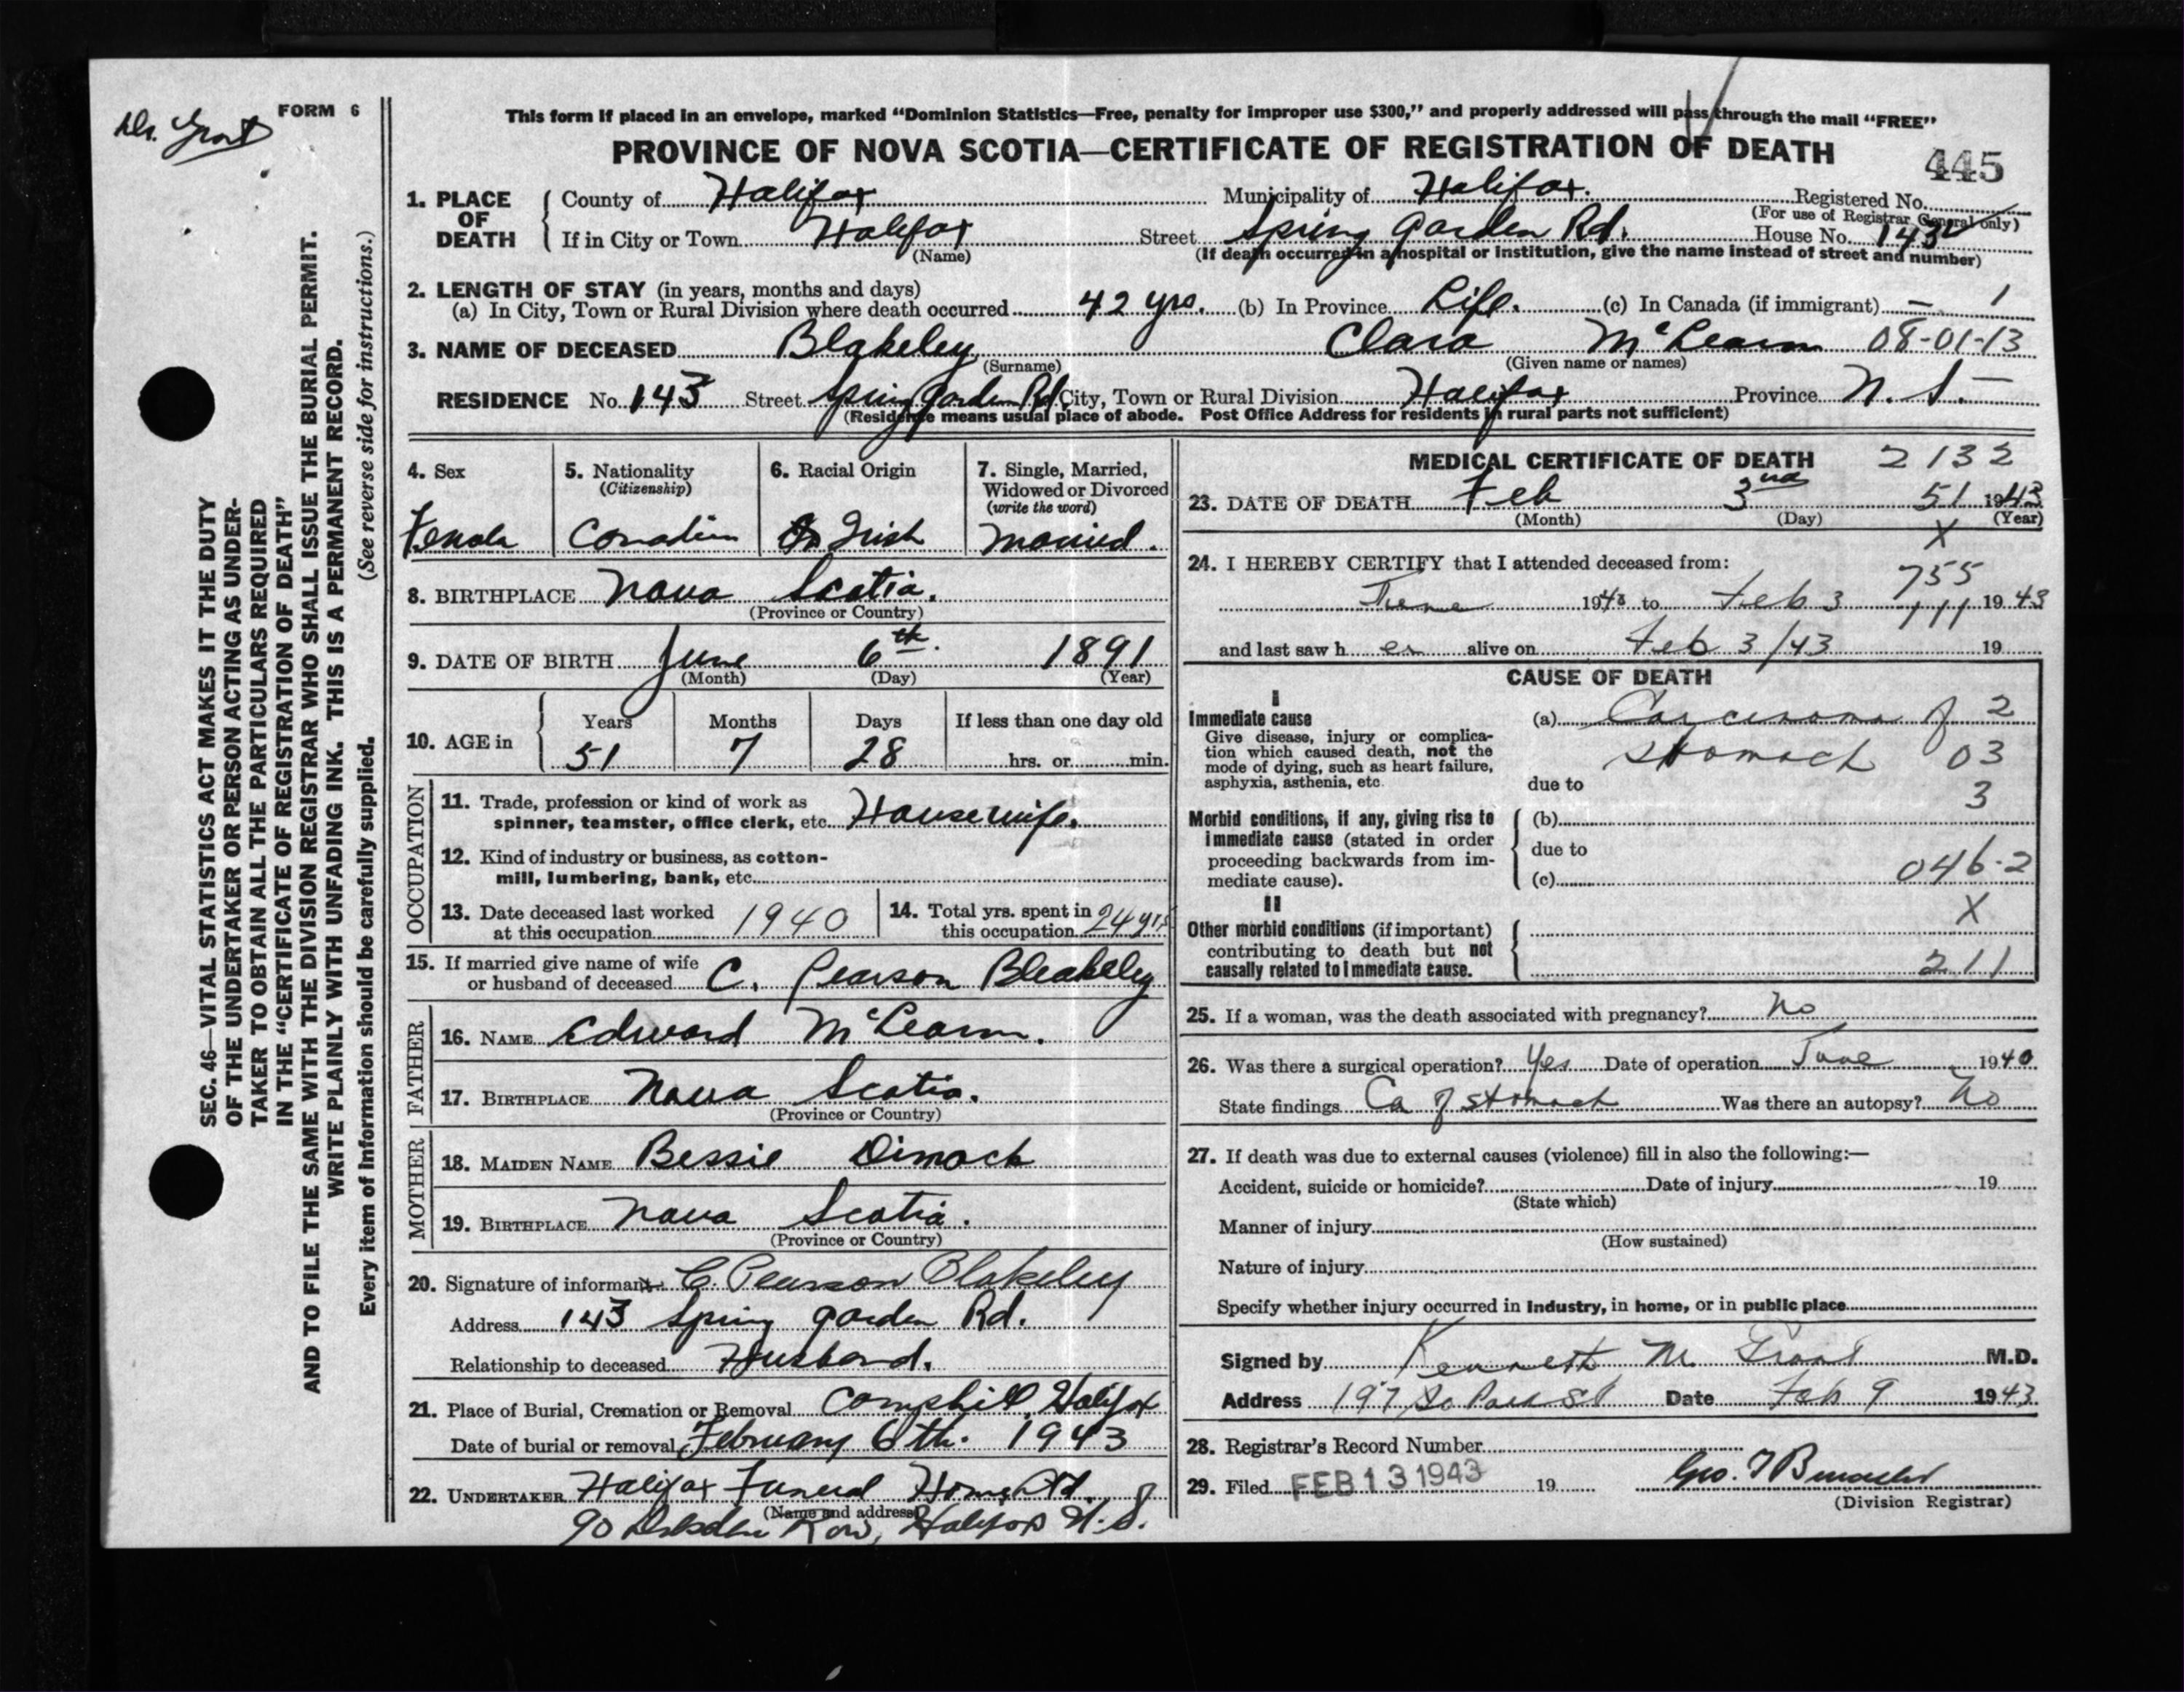 Dr. Grant
FORM 6
This form if placed in an envelope, marked "Dominion Statistics—Free, penalty for improper use $300," and properly addressed will pass through the mail "FREE"
PROVINCE OF NOVA SCOTIA—CERTIFICATE OF REGISTRATION OF DEATH
445
1. PLACE OF DEATH County of Halifax Municipality of Halifax. Registered No.
(For use of Registrar General only)
If in City or Town Halifax Street Spring Garden Rd. House No. 143
(Name) (If death occurred in a hospital or institution, give the name instead of street and number)
2. LENGTH OF STAY (in years, months and days)
(a) In City, Town or Rural Division where death occurred 42 yrs. (b) In Province Life. (c) In Canada (if immigrant) — 1
3. NAME OF DECEASED Blakeley, Clara McLearn 08-01-13
(Surname) (Given name or names)
RESIDENCE No. 143 Street Spring Garden Rd. City, Town or Rural Division Halifax Province N. S.
(Residence means usual place of abode. Post Office Address for residents in rural parts not sufficient)
4. Sex Female
5. Nationality (Citizenship) Canadian
6. Racial Origin Irish
7. Single, Married, Widowed or Divorced (write the word) Married.
8. BIRTHPLACE Nova Scotia.
(Province or Country)
9. DATE OF BIRTH June 6th. 1891
(Month) (Day) (Year)
10. AGE in Years 51 Months 7 Days 28 If less than one day old hrs. or min.
OCCUPATION
11. Trade, profession or kind of work as
spinner, teamster, office clerk, etc. Housewife.
12. Kind of industry or business, as cotton-
mill, lumbering, bank, etc.
13. Date deceased last worked at this occupation 1940
14. Total yrs. spent in this occupation 24 yrs
15. If married give name of wife
or husband of deceased C. Pearson Bleakeley
FATHER
16. NAME Edward McLearn.
17. BIRTHPLACE Nova Scotia.
(Province or Country)
MOTHER
18. MAIDEN NAME Bessie Dimock
19. BIRTHPLACE Nova Scotia.
(Province or Country)
20. Signature of informant C. Pearson Blakeley
Address 143 Spring Garden Rd.
Relationship to deceased Husband.
21. Place of Burial, Cremation or Removal Camphill, Halifax
Date of burial or removal February 6th. 1943
22. UNDERTAKER Halifax Funeral Home Ltd.
(Name and address)
90 Dresden Row, Halifax N. S.
MEDICAL CERTIFICATE OF DEATH 2132
23. DATE OF DEATH Feb 3rd 51 1943
(Month) (Day) (Year)
X
24. I HEREBY CERTIFY that I attended deceased from:
755
June 1940 to Feb 3 1943
111
and last saw h er alive on Feb 3/43 19
CAUSE OF DEATH
I
Immediate cause (a) Carcinoma of 2
Give disease, injury or complica-
tion which caused death, not the stomach 03
mode of dying, such as heart failure,
asphyxia, asthenia, etc. due to
3
Morbid conditions, if any, giving rise to (b)
immediate cause (stated in order due to
proceeding backwards from im-
mediate cause). (c) 046-2
II X
Other morbid conditions (if important)
contributing to death but not
causally related to immediate cause. 211
25. If a woman, was the death associated with pregnancy? No
26. Was there a surgical operation? Yes Date of operation June 1940
State findings Ca of stomach Was there an autopsy? No
27. If death was due to external causes (violence) fill in also the following:—
Accident, suicide or homicide? Date of injury 19
(State which)
Manner of injury
(How sustained)
Nature of injury
Specify whether injury occurred in industry, in home, or in public place
Signed by Kenneth M. Grant M.D.
Address 197 So Park St Date Feb 9 1943
28. Registrar's Record Number
29. Filed FEB 13 1943 19
(Division Registrar)
SEC. 46—VITAL STATISTICS ACT MAKES IT THE DUTY
OF THE UNDERTAKER OR PERSON ACTING AS UNDER-
TAKER TO OBTAIN ALL THE PARTICULARS REQUIRED
IN THE "CERTIFICATE OF REGISTRATION OF DEATH"
AND TO FILE THE SAME WITH THE DIVISION REGISTRAR WHO SHALL ISSUE THE BURIAL PERMIT.
WRITE PLAINLY WITH UNFADING INK. THIS IS A PERMANENT RECORD.
Every item of information should be carefully supplied. (See reverse side for instructions.)